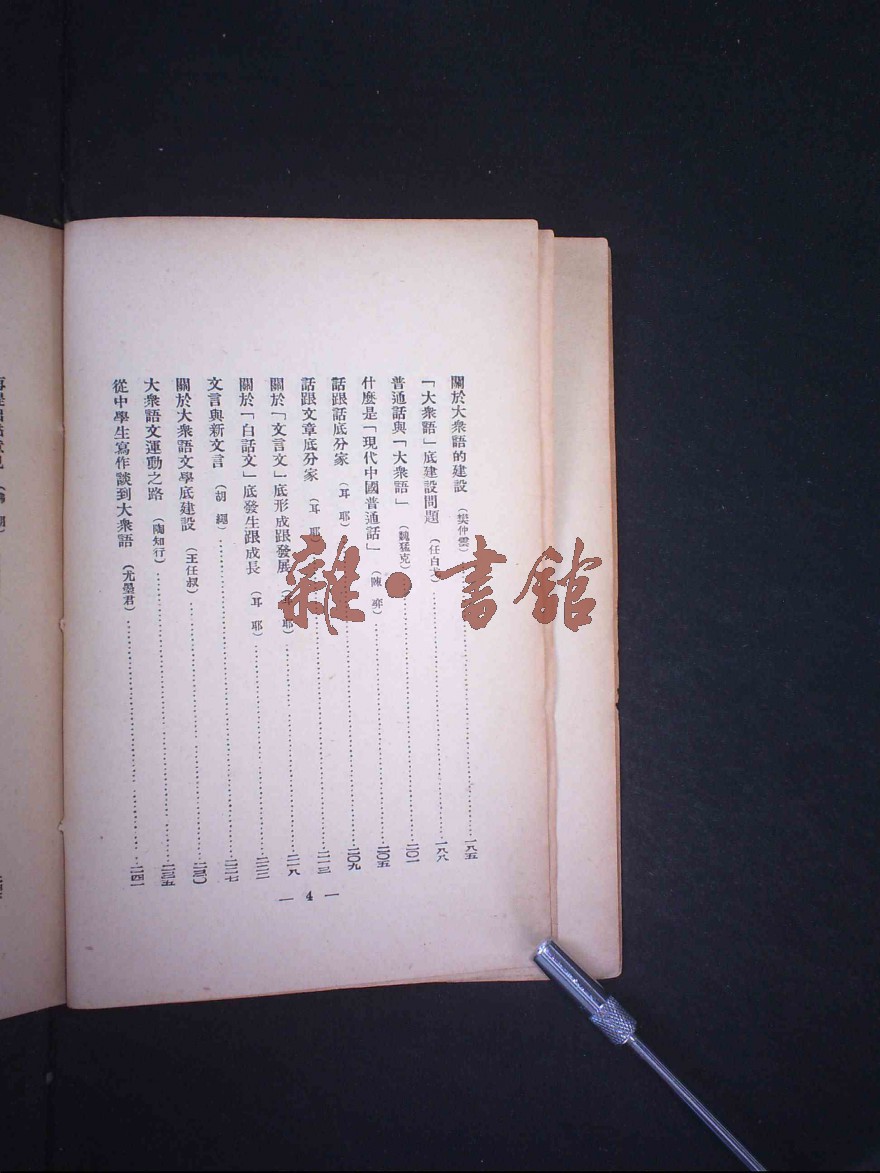 關於大衆語的建設（樊仲雲）一八五
「大衆語」底建設問題（任白戈）一八八
普通話與「大衆語」（魏猛克）二〇一
什麽是「現代中國普通話」（陳弈）二〇五
話跟話底分家（耳耶）二〇九
話跟文章底分家（耳耶）二一三
關於「文言文」底形成跟發展（耳耶）二一八
關於「白話文」底發生跟成長（耳耶）二二二
文言與新文言（胡繩）二二七
關於大衆語文學底建設（王任叔）二三〇
大衆語文運動之路（陶知行）二三五
從中學生寫作談到大衆語（尤墨君）二四一
— 4 —
雜•書館